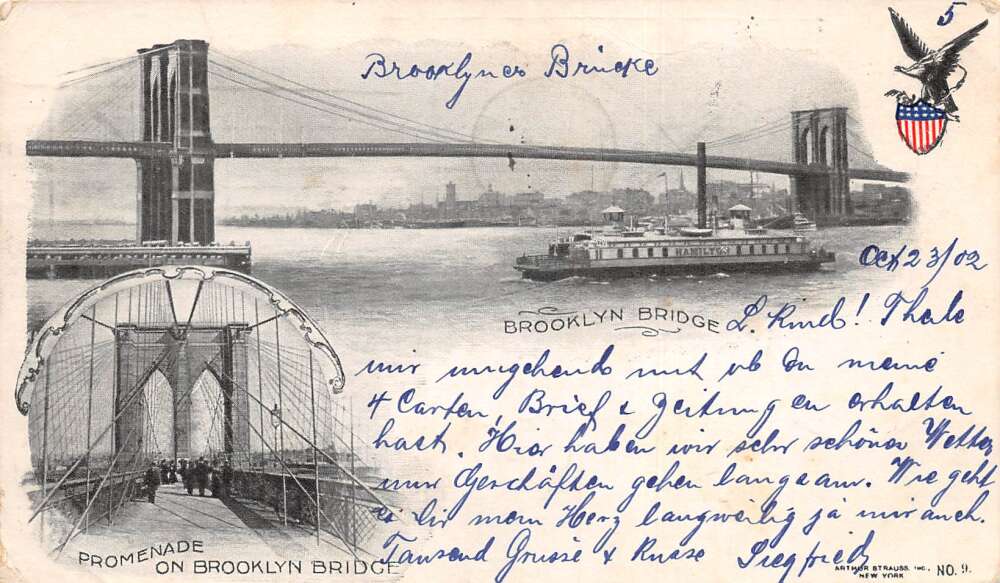 5
Brooklyner Brücke
HAMILTON
Oct 23/02
BROOKLYN BRIDGE
L. Kind! Theile
mir umgehend mit ob Du meine
4 Carten, Brief & Zeitungen erhalten
hast. Hier haben wir sehr schönes Wetter
nur Geschäften gehen langsam. Wie geht
es Dir mein Herz langweilig ja mir auch.
Tausend Grüsse & Küsse Siegfried
PROMENADE
ON BROOKLYN BRIDGE
ARTHUR STRAUSS, INC.,
NEW YORK
NO. 9.